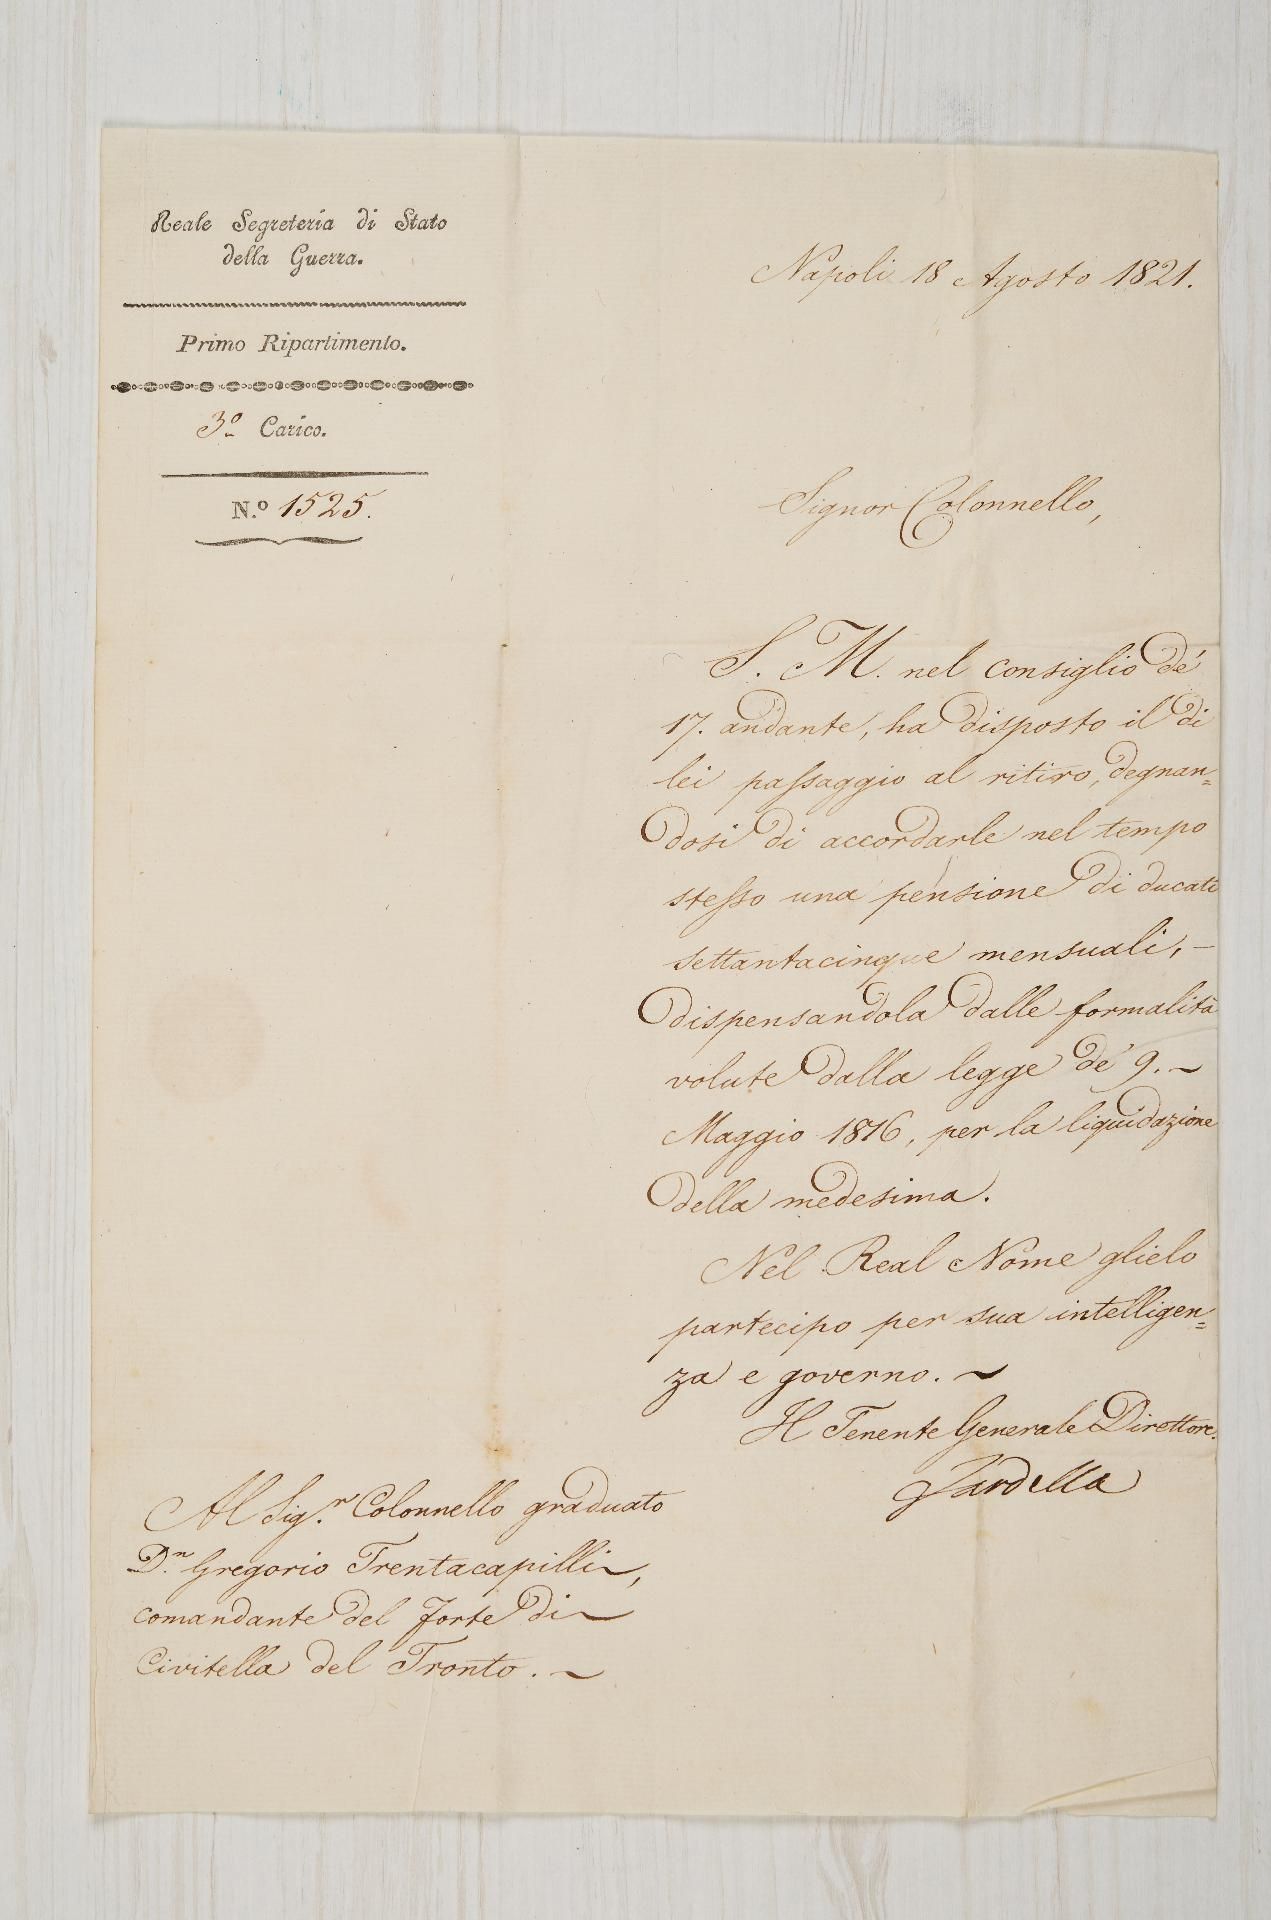 Reale Segreteria di Stato
della Guerra.
Primo Ripartimento.
3º Carico.
N.º 1525.
Napoli 18 Agosto 1821.
Signor Colonnello,
S. M. nel consiglio de'
17. andante, ha disposto il di
lei passaggio al ritiro, degnan=
dosi di accordarle nel tempo
stesso una pensione di ducati
settantacinque mensuali, –
dispensandola dalle formalità
volute dalla legge de' 9. ~
Maggio 1816, per la liquidazione
della medesima.
Nel Real Nome glielo
partecipo per sua intelligen=
za e governo. ~
Il Tenente Generale Direttore.
Fardella
Al Sig.r Colonnello graduato
D.n Gregorio Trentacapilli,
comandante del Forte di
Civitella del Tronto. ~